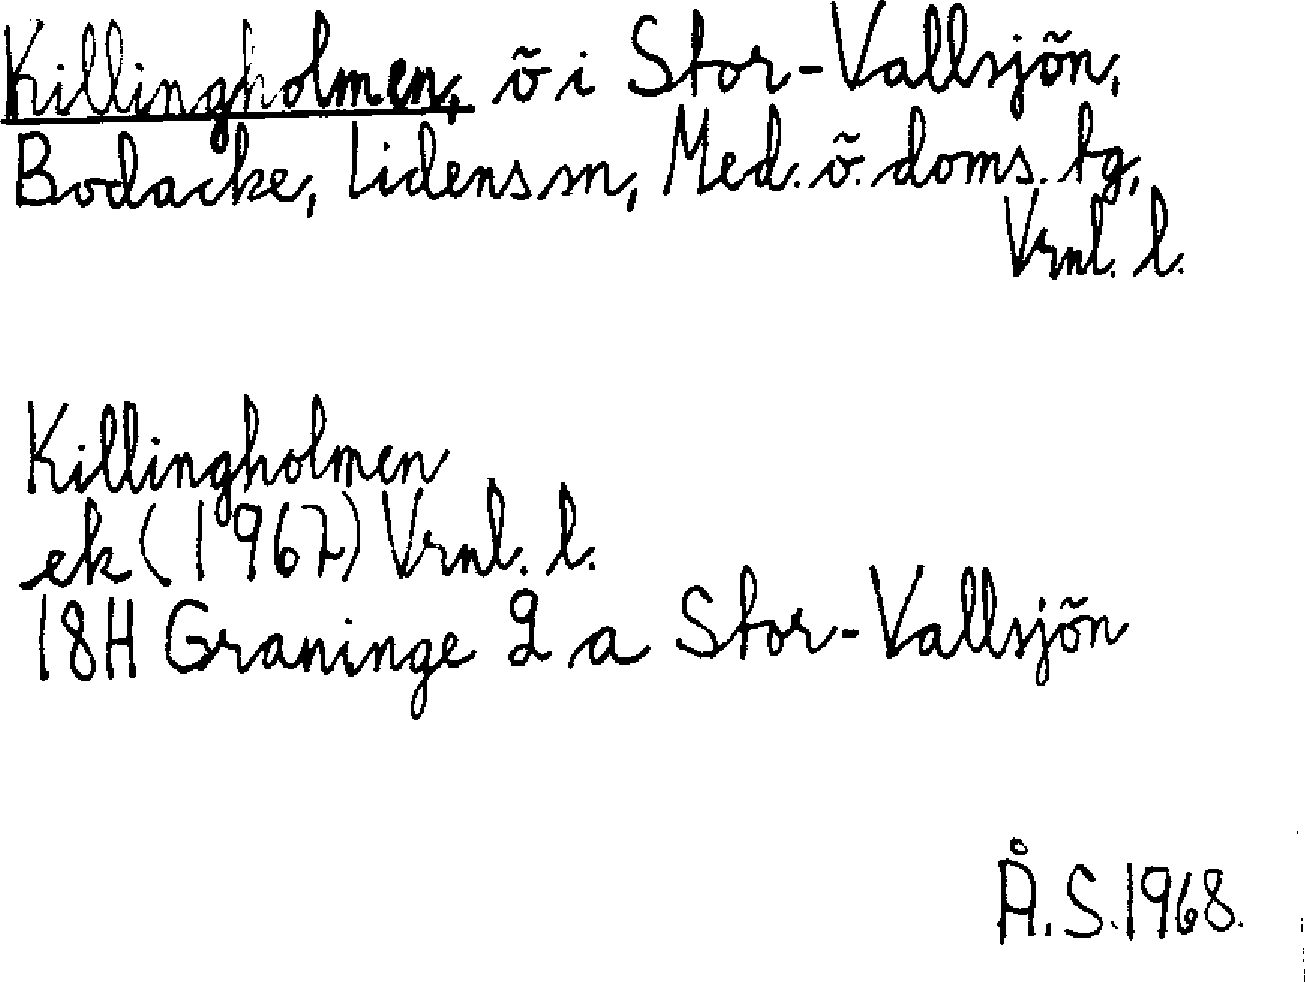 Killingholmen, ö i Stor-Vallsjön,
Bodacke, Lidens sn, Med. ö. doms. tg,
Vrnl. l.
Killingholmen
ek (1967) Vrnl. l.
18H Graninge 2 a Stor-Vallsjön
Å.S. 1968.